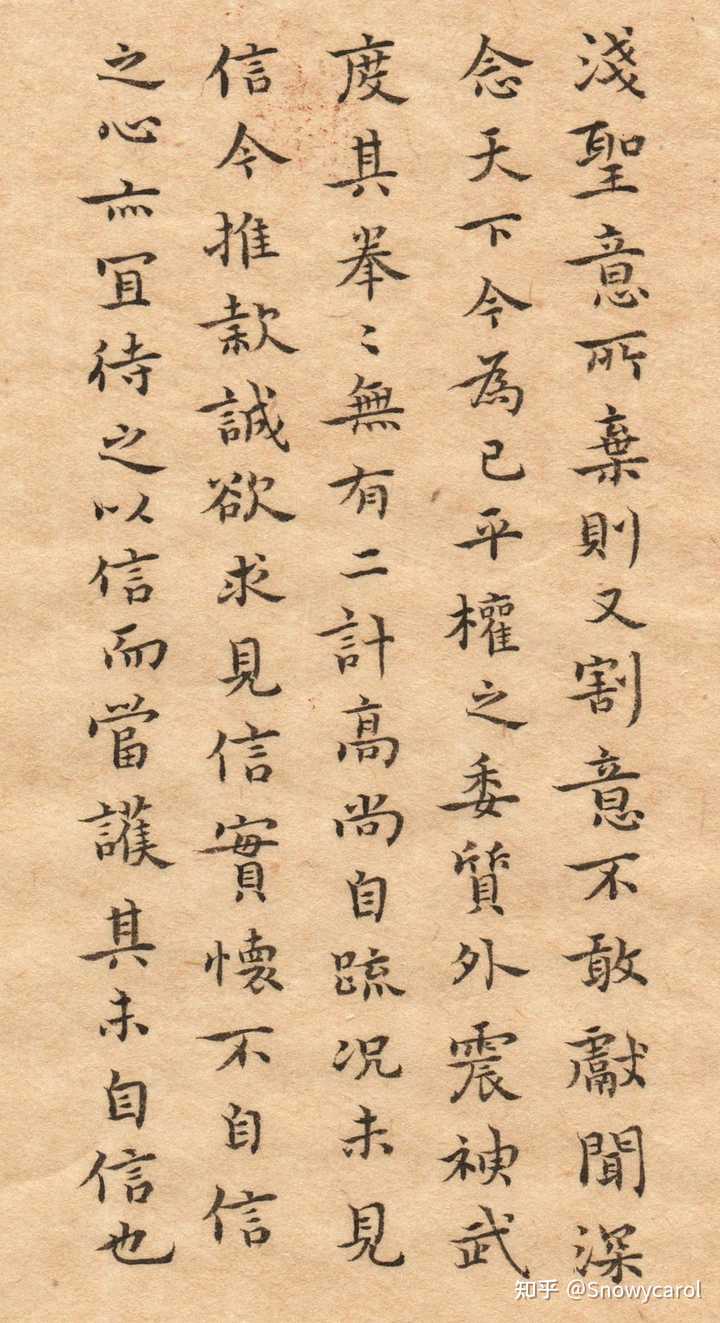 淺聖意所棄則又割意不敢獻聞深
念天下今為已平權之委質外震神武
度其拳〻無有二計高尚自疏況未見
信今推款誠欲求見信實懷不自信
之心亦宜待之以信而當護其未自信也
知乎 @Snowycarol